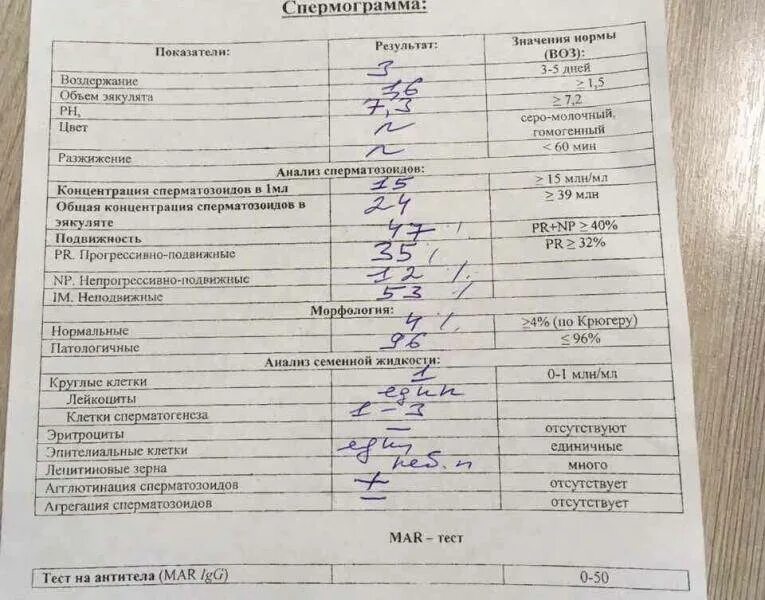 Спермограмма:
Показатели: Результат: Значения нормы (ВОЗ):
Воздержание 3 3-5 дней
Объем эякулята 1,6 ≥ 1,5
РН, 7,3 ≥ 7,2
Цвет N серо-молочный, гомогенный
Разжижение N < 60 мин
Анализ сперматозоидов:
Концентрация сперматозоидов в 1мл 15 ≥ 15 млн/мл
Общая концентрация сперматозоидов в эякуляте 24 ≥ 39 млн
Подвижность 47 % PR+NP ≥ 40%
PR. Прогрессивно-подвижные 35 % PR ≥ 32%
NP. Непрогрессивно-подвижные 12 %
IM. Неподвижные 53 %
Морфология:
Нормальные 4 % ≥4% (по Крюгеру)
Патологичные 96 ≤ 96%
Анализ семенной жидкости:
Круглые клетки 1 0-1 млн/мл
Лейкоциты един
Клетки сперматогенеза 1-3
Эритроциты – отсутствуют
Эпителиальные клетки един единичные
Лецитиновые зерна неб. п много
Агглютинация сперматозоидов + отсутствует
Агрегация сперматозоидов – отсутствует
MAR – тест
Тест на антитела (MAR IgG) 0-50